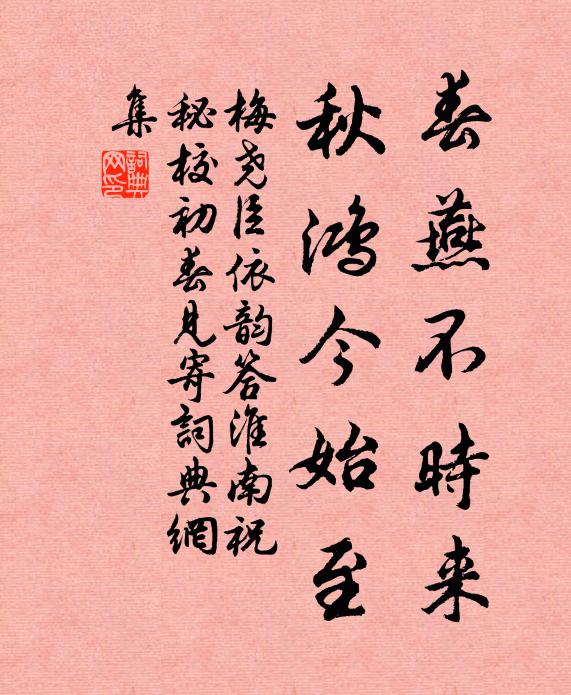 春燕不時来
秋鴻今始至
梅尧臣依韵答淮南祝
秘校初春見寄詞典網
集
詞典網印